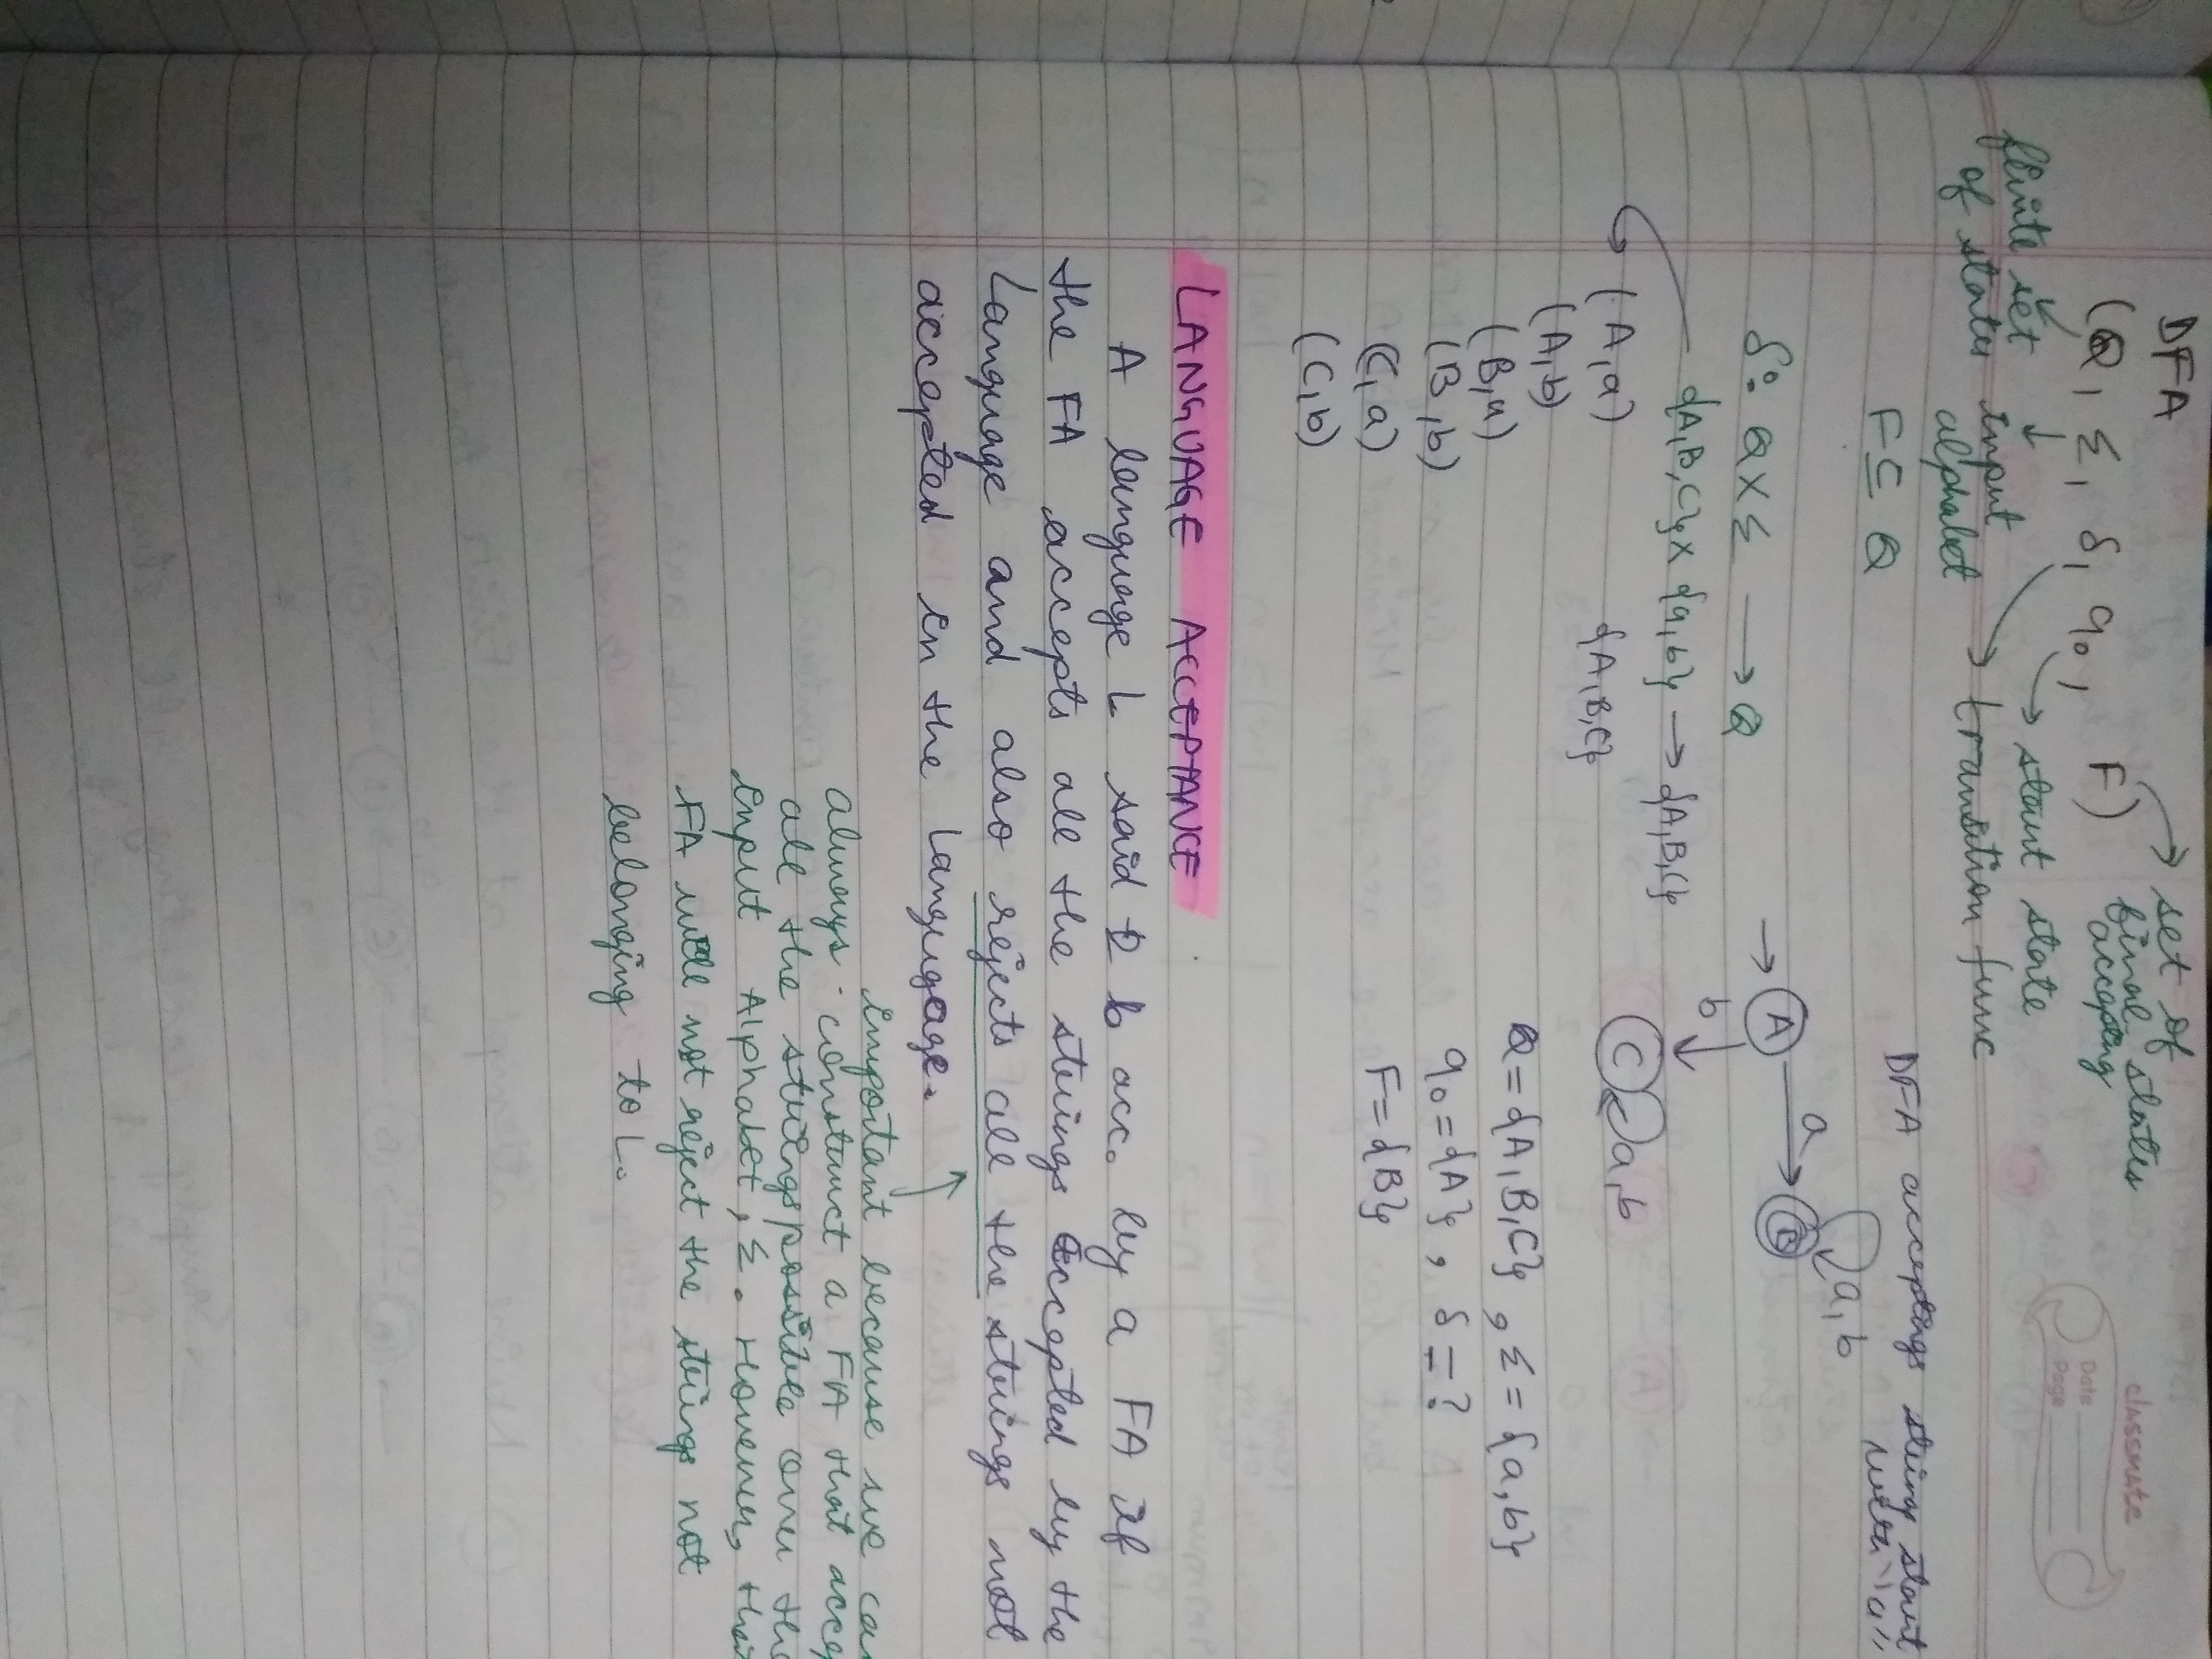 classmate
Date
Page
DFA
(Q, Σ, δ, q₀, F)
set of
final states
accepting
start state
transition func
finite set
of states
input
alphabet
F ⊆ Q
DFA accepting string start
with 'a'
δ: Q x Σ → Q
{A,B,C} x {a,b} → {A,B,C}
(A,a)
{A,B,C}
(A,b)
(B,a)
(B,b)
(C,a)
(C,b)
→ A
a
B
a,b
b
C
a,b
Q = {A,B,C}, Σ = {a,b}
q₀ = {A}, δ = ?
F = {B}
LANGUAGE ACCEPTANCE
A language L said 2 b acc. by a FA if
the FA accepts all the strings accepted by the
Language and also rejects all the strings not
accepted in the Language.
important because we can
always construct a FA that accep
all the strings possible over the
input Alphabet, Σ. However, this
FA will not reject the strings not
belonging to L.